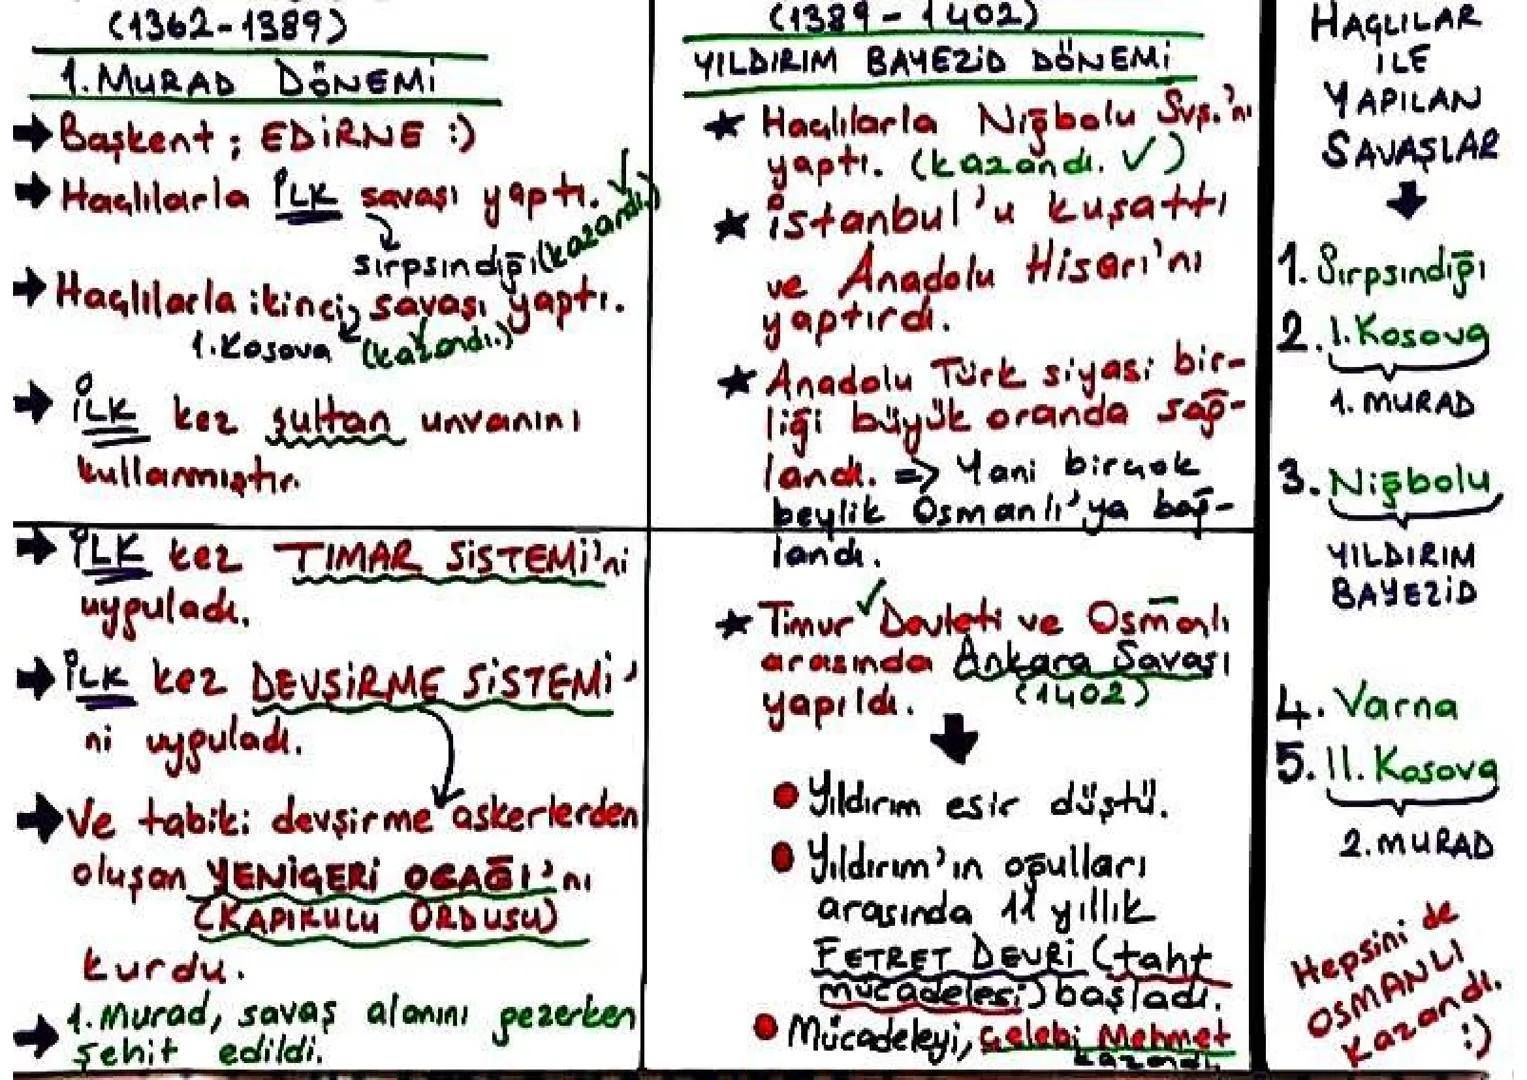 (1362-1389)
1. MURAD DÖNEMİ
→ Başkent ; EDİRNE :)
→ Haçlılarla İLK savaşı yaptı. ✓
Sırpsındığı (kazandı.)
→ Haçlılarla ikinci savaşı yaptı.
1. Kosova (kazandı.)
→ İLK kez sultan unvanını
kullanmıştır.
→ İLK kez TIMAR SİSTEMİ'ni
uyguladı.
→ İLK kez DEVŞİRME SİSTEMİ'
ni uyguladı.
→ Ve tabiki devşirme askerlerden
oluşan YENİÇERİ OCAĞI'nı
(KAPIKULU ORDUSU)
kurdu.
→ 1. Murad, savaş alanını gezerken
şehit edildi.
(1389-1402)
YILDIRIM BAYEZİD DÖNEMİ
★ Haçlılarla Niğbolu Svş.'nı
yaptı. (kazandı. ✓)
★ İstanbul'u kuşattı
ve Anadolu Hisarı'nı
yaptırdı.
★ Anadolu Türk siyasi bir-
liği büyük oranda sağ-
landı. => Yani birçok
beylik Osmanlı'ya bağ-
landı.
★ Timur ✓ Devleti ve Osmanlı
arasında Ankara Savaşı
(1402)
yapıldı.
● Yıldırım esir düştü.
● Yıldırım'ın oğulları
arasında 11 yıllık
FETRET DEVRİ (taht
mücadelesi) başladı.
● Mücadeleyi, Çelebi Mehmet
kazandı.
HAÇLILAR
İLE
YAPILAN
SAVAŞLAR
1. Sırpsındığı
2. I. Kosova
1. MURAD
3. Niğbolu
YILDIRIM
BAYEZİD
4. Varna
5. II. Kosova
2. MURAD
Hepsini de
OSMANLI
kazandı.
:)